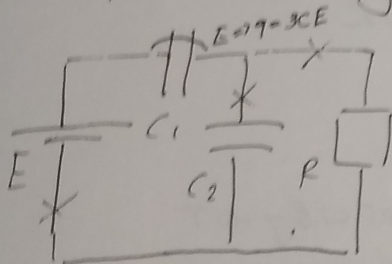 E=>q=3CE
C₁
E
C₂
R